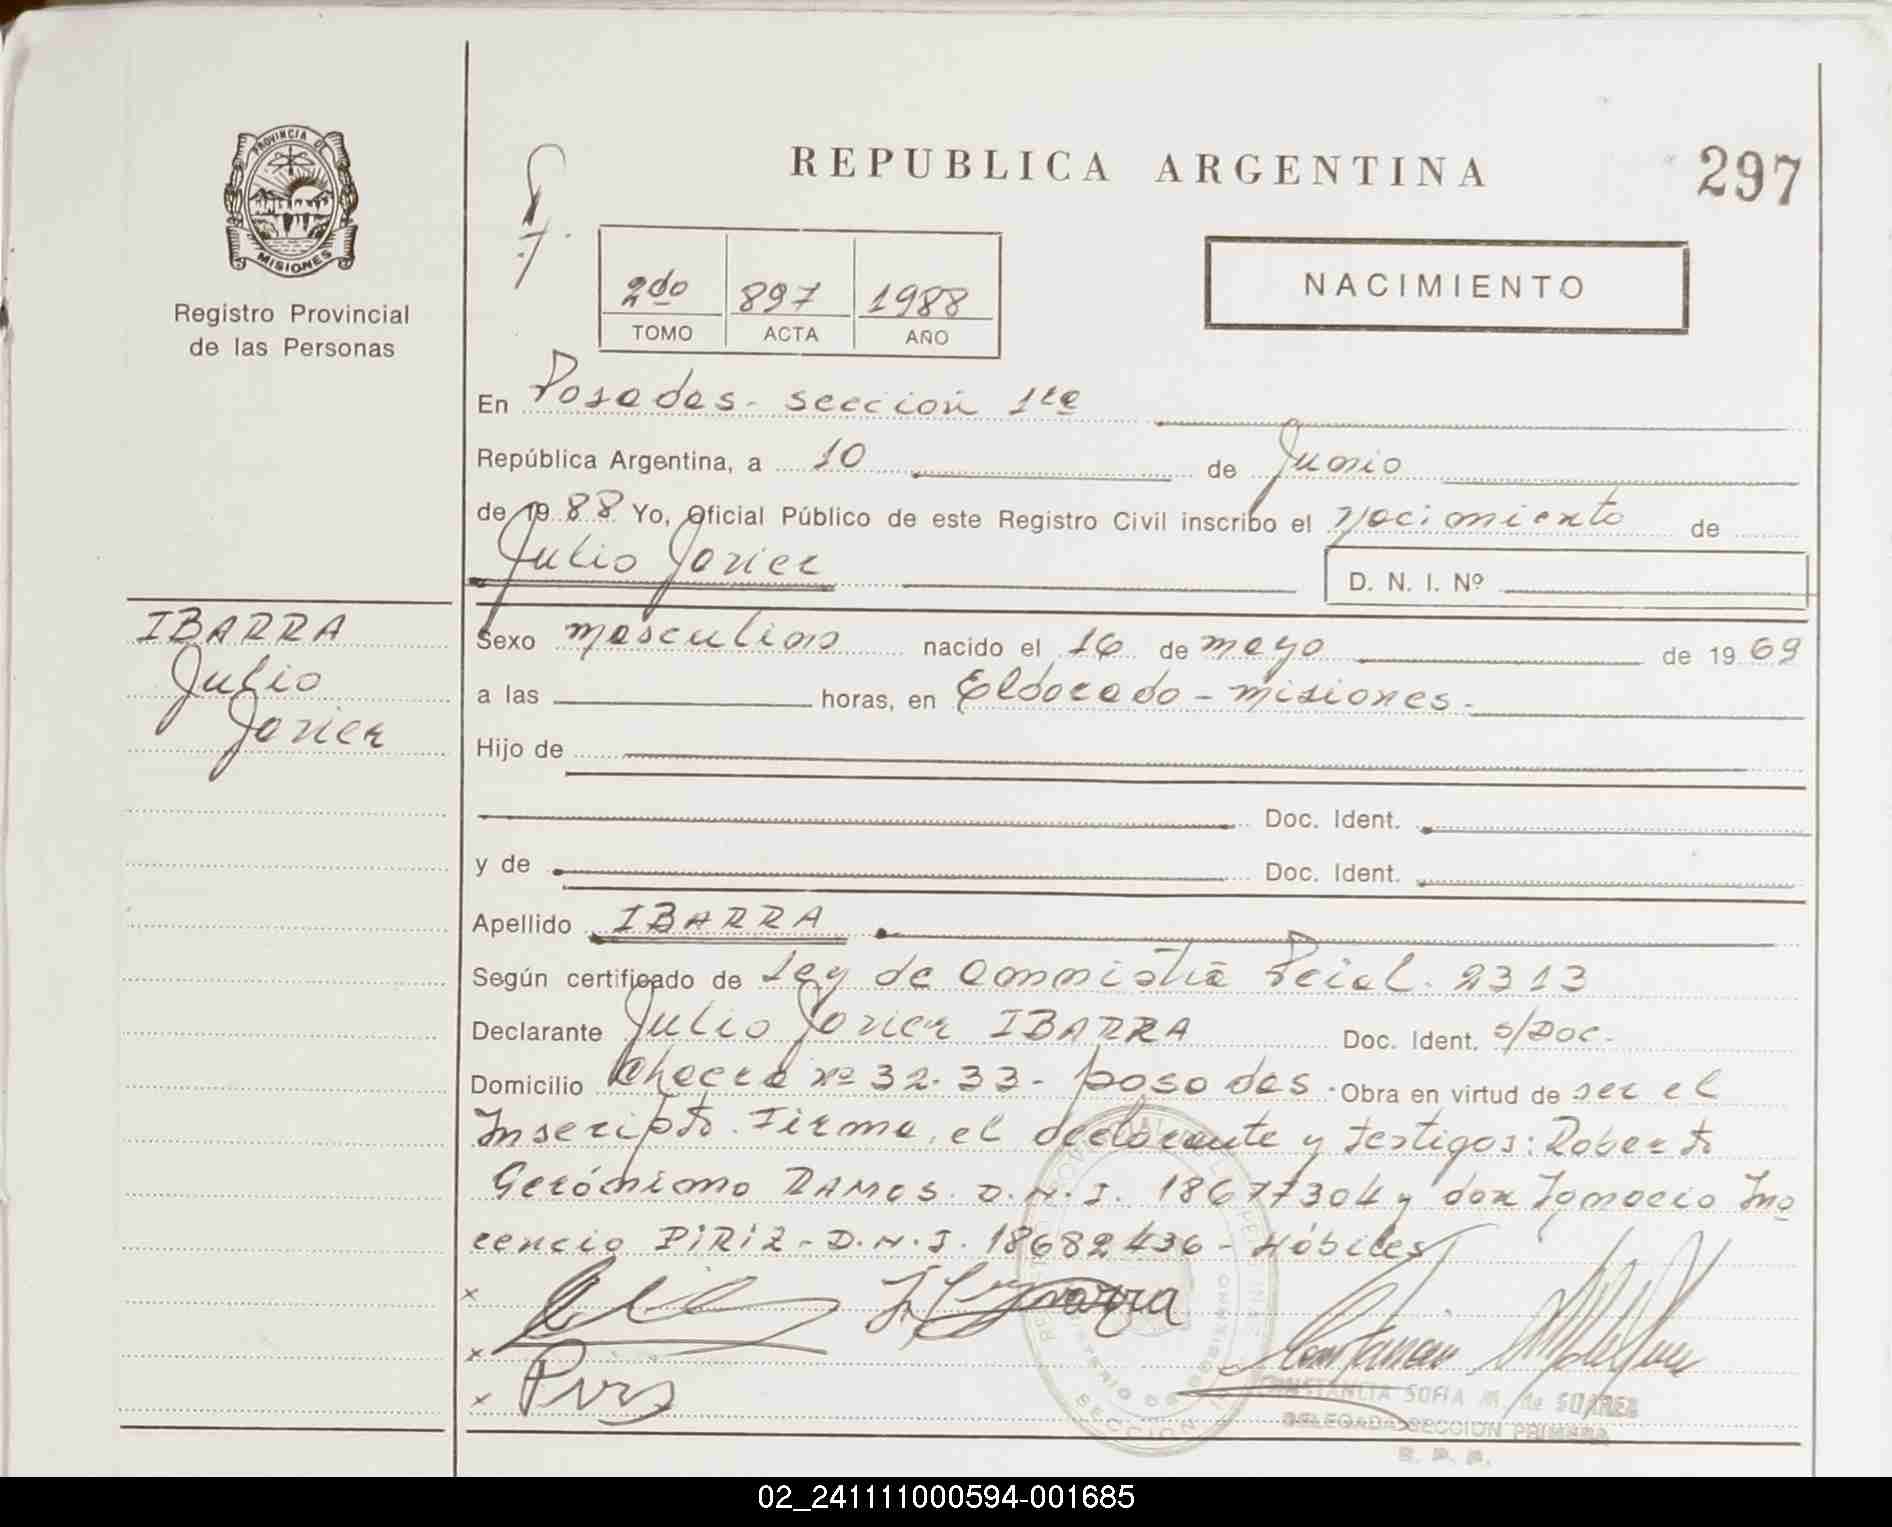 PROVINCIA DE
MISIONES
Registro Provincial
de las Personas
IBARRA
Julio
Javier
REPUBLICA ARGENTINA
297
2do 897 1988
TOMO ACTA AÑO
NACIMIENTO
En Posadas - sección 1ra
República Argentina, a 10 de Junio
de 1988 Yo, Oficial Público de este Registro Civil inscribo el Nacimiento de
Julio Javier D. N. I. Nº
Sexo masculino nacido el 16 de mayo de 1969
a las horas, en Eldorado - misiones.
Hijo de
Doc. Ident.
y de Doc. Ident.
Apellido IBARRA
Según certificado de Ley de Amnistia Pcial. 2313
Declarante Julio Javier IBARRA Doc. Ident. s/Doc.
Domicilio Chacra nº 32-33 - posadas. Obra en virtud de ser el
Inscripto. Firma, el declarante y testigos: Roberto
Gerónimo RAMOS. D.N.I. 18677304 y don Ignacio Ino
cencio PIRIZ - D.N.I. 18682436 - Hábiles
CONSTANCIA SOFIA M. de SUAREZ
DELEGADA SECCION PRIMERA
R. P. P.
02_241111000594-001685